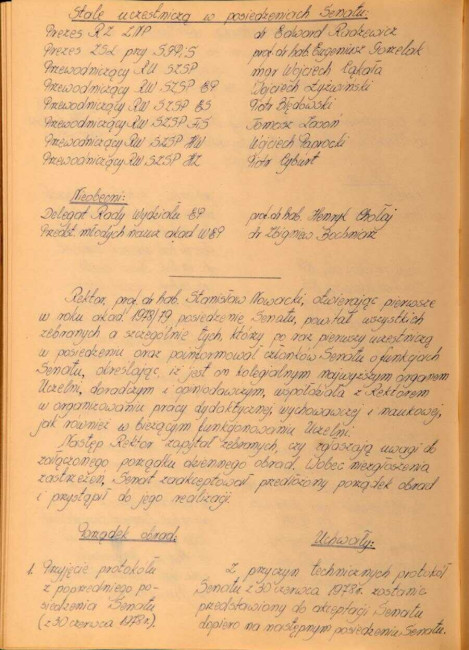 Stale uczestniczą w posiedzeniach Senatu:
Prezes RZ ZNP dr Edward Radzewicz
Prezes ZSL przy SGPiS prof. dr hab. Eugeniusz Gorzelak
Przewodniczący RU SZSP mgr Wojciech Łąkała
Przewodniczący RW SZSP EP Wojciech
Przewodniczący RW SZSP ES Piotr Błędowski
Przewodniczący RW SZSP FiS Tomasz
Przewodniczący RW SZSP HW Wojciech Gawrocki
Przewodniczący RW SZSP HZ Piotr Cyburt
Nieobecni:
Delegat Rady Wydziału EP prof. dr hab. Henryk Chołaj
Przedst. młodych nauk. akad. W EP dr Zbigniew Bochniarz
Rektor, prof. dr hab. Stanisław Nowacki, otwierając pierwsze
w roku akad. 1978/79 posiedzenie Senatu, powitał wszystkich
zebranych a szczególnie tych, którzy po raz pierwszy uczestniczą
w posiedzeniu oraz poinformował członków Senatu o funkcjach
Senatu, określając, iż jest on kolegialnym najwyższym organem
Uczelni, doradczym i opiniodawczym, współdziała z Rektorem
w organizowaniu pracy dydaktycznej, wychowawczej i naukowej,
jak również w bieżącym funkcjonowaniu Uczelni.
Następ. Rektor zapytał zebranych, czy zgłaszają uwagi do
załączonego porządku dziennego obrad. Wobec niezgłoszenia
zastrzeżeń, Senat zaakceptował przedłożony porządek obrad
i przystąpił do jego realizacji.
Porządek obrad: Uchwały:
1. Przyjęcie protokołu Z przyczyn technicznych protokół
z poprzedniego po- Senatu z 30 czerwca 1978r. zostanie
siedzenia Senatu przedstawiony do akceptacji Senatu
(z 30 czerwca 1978r.). dopiero na następnym posiedzeniu Senatu.